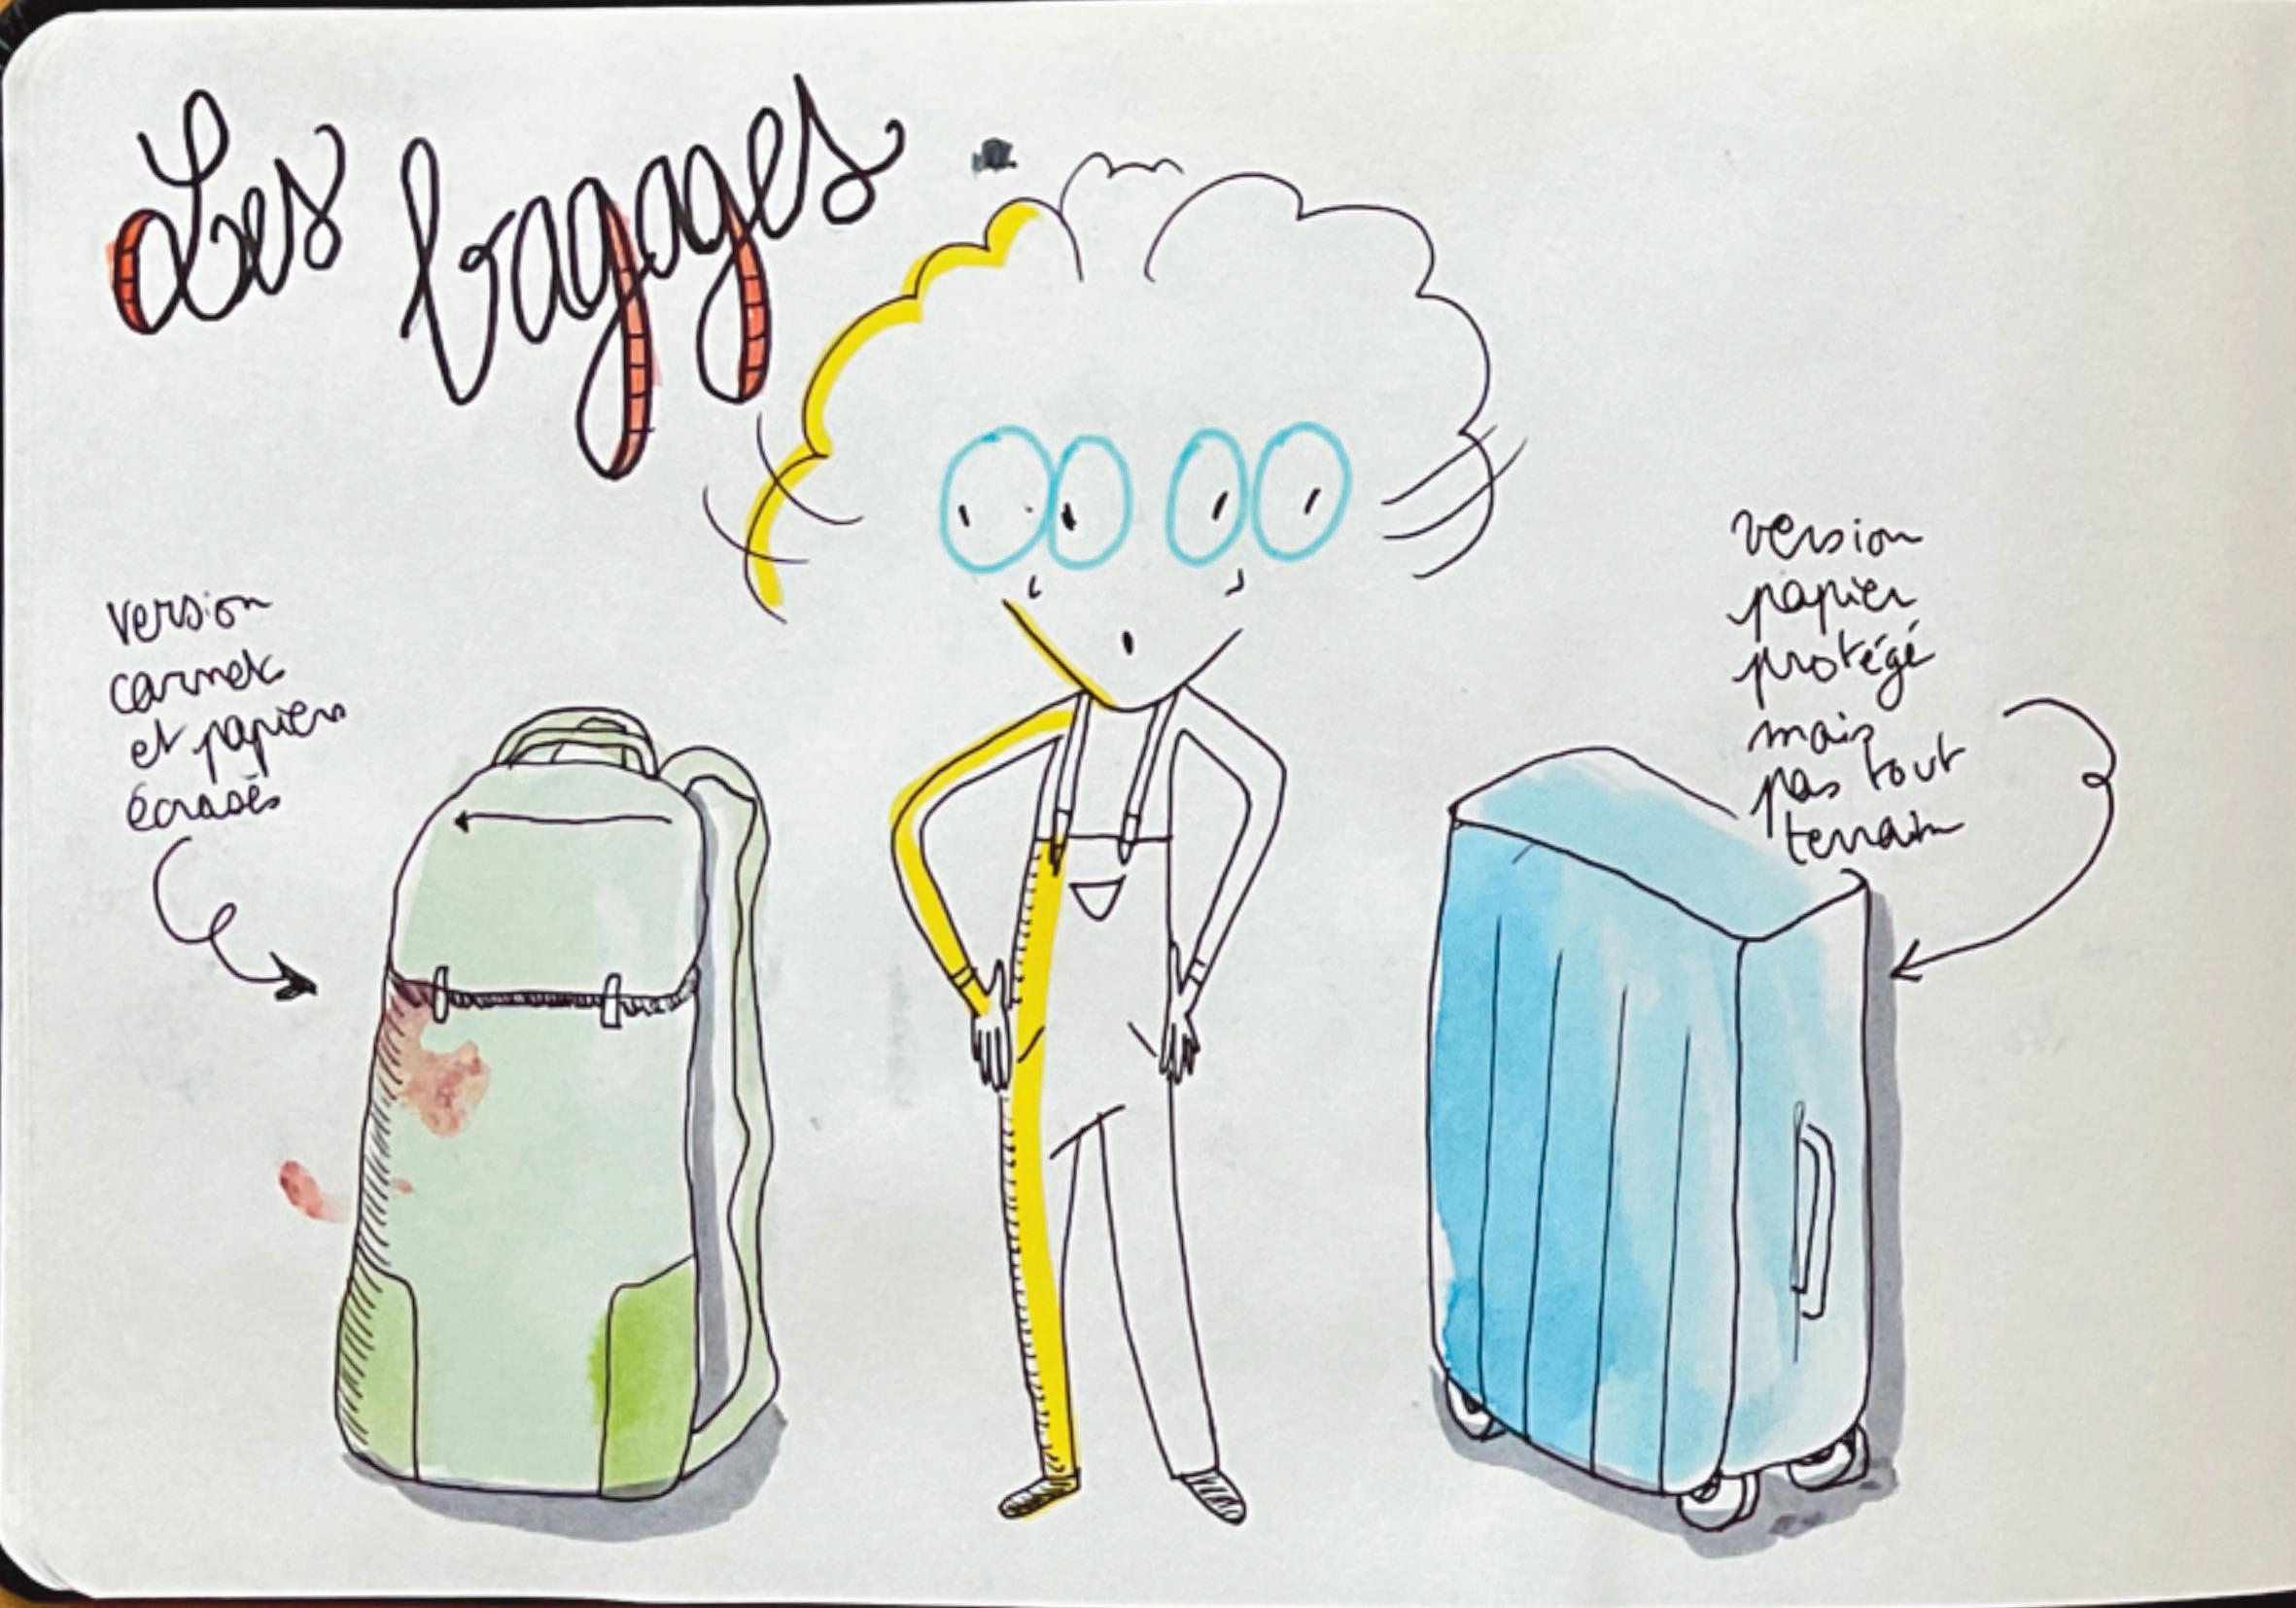 Les bagages
version
carnet
et papiers
écrasés
version
papier
protégé
mais
pas tout
terrain